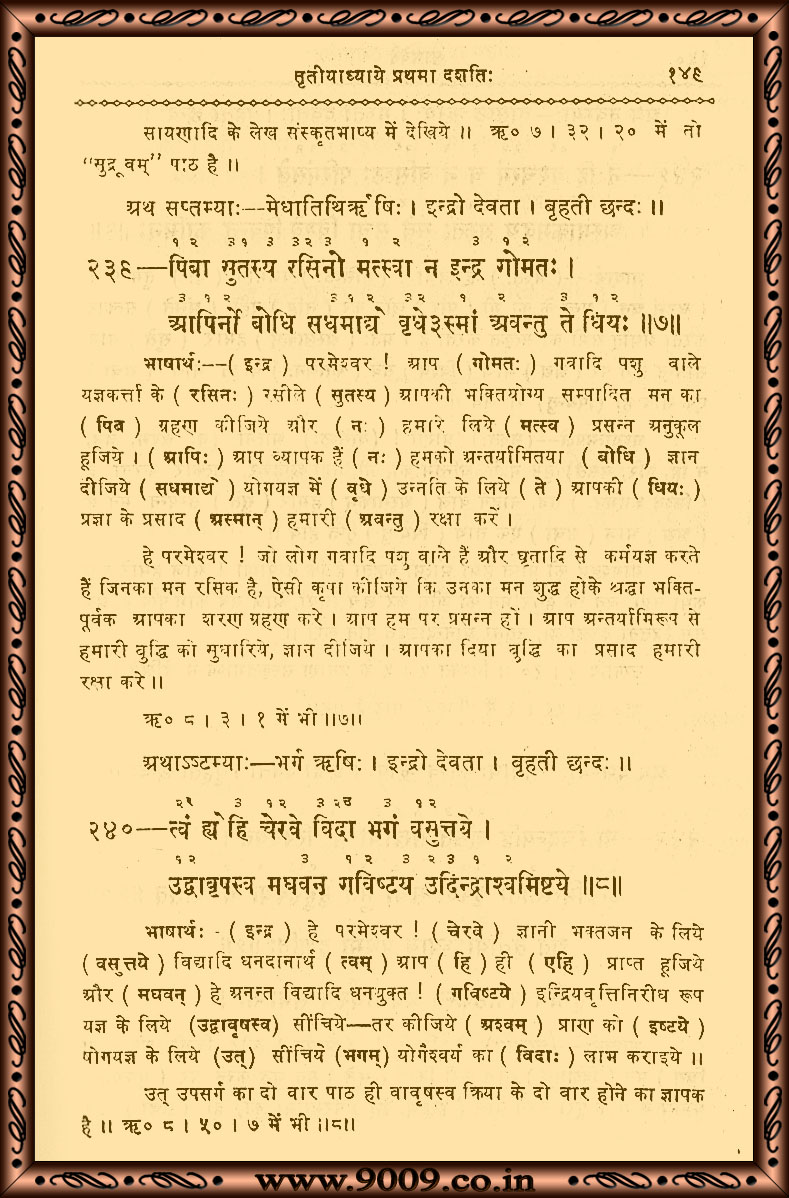 तृतीयाध्याये प्रथमा दशतिः १४९
सायणादि के लेख संस्कृतभाष्य में देखिये ॥ ऋ० ७ । ३२ । २० में तो
“सुद्रूवम्” पाठ है ॥
अथ सप्तम्याः--मेधातिथिर्ऋषिः । इन्द्रो देवता । बृहती छन्दः ॥
१ २ ३१ ३ ३२ ३ १ २ ३ १ २
२३९—पिबा सुतस्य रसिनो मत्स्वा न इन्द्र गोमतः ।
३ १ २ ३१ २ ३२ १ २ ३ १ २
आपिर्नो बोधि सधमाद्ये वृधे३स्मां अवन्तु ते धियः ॥७॥
भाषार्थः--( इन्द्र ) परमेश्वर ! आप ( गोमतः ) गवादि पशु वाले
यज्ञकर्त्ता के ( रसिनः ) रसीले ( सुतस्य ) आपकी भक्तियोग्य सम्पादित मन का
( पिब ) ग्रहण कीजिये और ( नः ) हमारे लिये ( मत्स्व ) प्रसन्न अनुकूल
हूजिये । ( आपिः ) आप व्यापक हैं ( नः ) हमको अन्तर्यामितया ( बोधि ) ज्ञान
दीजिये ( सधमाद्ये ) योगयज्ञ में ( वृधे ) उन्नति के लिये ( ते ) आपकी ( धियः )
प्रज्ञा के प्रसाद ( अस्मान् ) हमारी ( अवन्तु ) रक्षा करें ।
हे परमेश्वर ! जो लोग गवादि पशु वाले हैं और घृतादि से कर्मयज्ञ करते
हैं जिनका मन रसिक है, ऐसी कृपा कीजिये कि उनका मन शुद्ध होके श्रद्धा भक्ति-
पूर्वक आपका शरण ग्रहण करे । आप हम पर प्रसन्न हों । आप अन्तर्यामिरूप से
हमारी बुद्धि को सुधारिये, ज्ञान दीजिये । आपका दिया बुद्धि का प्रसाद हमारी
रक्षा करे ॥
ऋ० ८ । ३ । १ में भी ॥७॥
अथाऽष्टम्याः—भर्ग ऋषिः । इन्द्रो देवता । बृहती छन्दः ॥
२र ३ १२ ३ २उ ३ १२
२४०—त्वं ह्येहि चेरवे विदा भगं वसुत्तये ।
१२ ३ १ २ ३ २ ३ १ २
उद्वावृषस्व मघवन् गविष्टय उदिन्द्राश्वमिष्टये ॥८॥
भाषार्थः - ( इन्द्र ) हे परमेश्वर ! ( चेरवे ) ज्ञानी भक्तजन के लिये
( वसुत्तये ) विद्यादि धनदानार्थ ( त्वम् ) आप ( हि ) ही ( एहि ) प्राप्त हूजिये
और ( मघवन् ) हे अनन्त विद्यादि धनयुक्त ! ( गविष्टये ) इन्द्रियवृत्तिनिरोध रूप
यज्ञ के लिये (उद्वावृषस्व) सींचिये—तर कीजिये ( अश्वम् ) प्राण को ( इष्टये )
योगयज्ञ के लिये (उत्) सींचिये (भगम्) योगैश्वर्य का ( विदाः ) लाभ कराइये ॥
उत् उपसर्ग का दो वार पाठ ही वावृषस्व क्रिया के दो वार होने का ज्ञापक
है ॥ ऋ० ८ । ५० । ७ में भी ॥८॥
www.9009.co.in